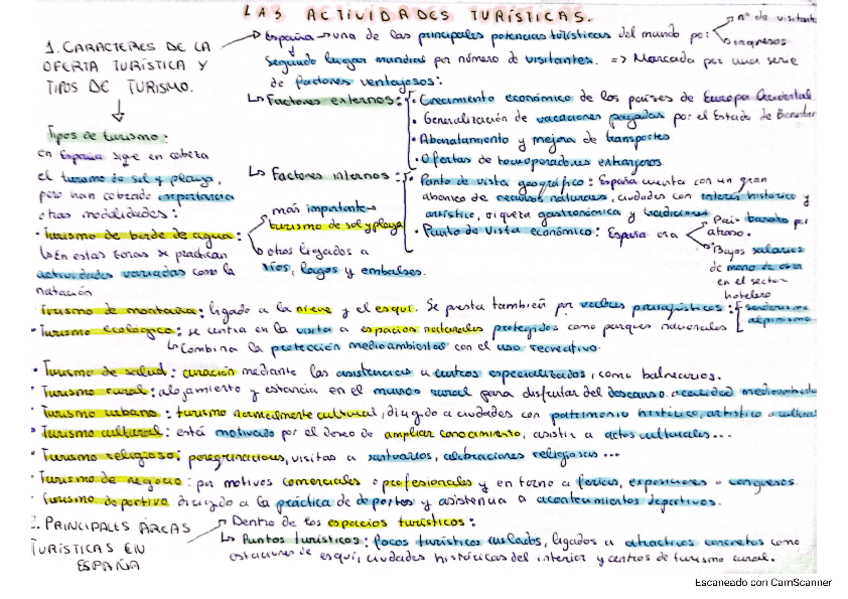 LAS ACTIVIDADES TURÍSTICAS.
1. CARACTERES DE LA OFERTA TURÍSTICA Y TIPOS DE TURISMO.
España → una de las principales potencias turísticas del mundo por: nº de visitante
ingresos
Segundo lugar mundial por número de visitantes. => Marcada por una serie
de factores ventajosos:
Factores externos:
• Crecimiento económico de los países de Europa Occidental
• Generalización de vacaciones pagadas por el Estado de Bienestar
• Abaratamiento y mejora de transportes
• Ofertas de touroperadores extranjeros
Factores internos:
• Punto de vista geográfico: España cuenta con un gran
abanico de recursos naturales, ciudades con interés histórico y
artístico, riqueza gastronómica y tradiciones
• Punto de vista económico: España era
País barato por
ahorro.
Bajos salarios
de mano de obra
en el sector
hotelero
Tipos de turismo:
en España sigue en cabeza
el turismo de sol y playa,
pero han cobrado importancia
otras modalidades:
• Turismo de borde de agua:
más importante
turismo de sol y playa
otros ligados a
ríos, lagos y embalses.
En estas zonas se practican
actividades variadas como la
natación
Turismo de montaña: ligado a la nieve y el esquí. Se presta también por valores paisajísticos: senderismo
alpinismo
• Turismo ecológico: se centra en la visita a espacios naturales protegidos como parques nacionales
Combina la protección medioambiental con el uso recreativo.
• Turismo de salud: curación mediante las asistencias a centros especializados, como balnearios.
• Turismo rural: alojamiento y estancia en el mundo rural para disfrutar del descanso o calidad medioambiental
• Turismo urbano: turismo normalmente cultural, dirigido a ciudades con patrimonio histórico, artístico o cultural
• Turismo cultural: está motivado por el deseo de ampliar conocimiento, asistir a actos culturales...
• Turismo religioso: peregrinaciones, visitas a santuarios, celebraciones religiosas...
• Turismo de negocio: por motivos comerciales o profesionales y en torno a ferias, exposiciones o congresos
Turismo deportivo dirigido a la práctica de deportes y asistencia a acontecimientos deportivos.
2. PRINCIPALES ÁREAS
TURÍSTICAS EN
ESPAÑA
Dentro de los espacios turísticos:
Puntos turísticos: focos turísticos aislados, ligados a atractivos concretos como
estaciones de esquí, ciudades históricas del interior y centros de turismo rural.
Escaneado con CamScanner